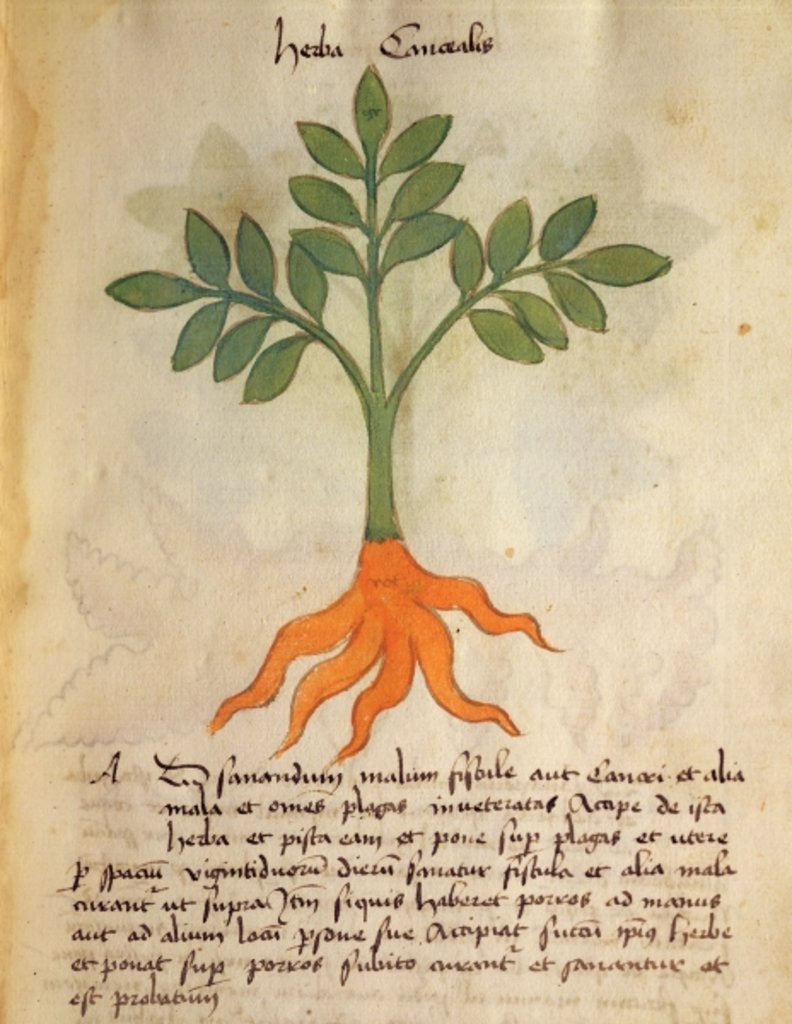 Herba Cancealis
A D sanandum malum fistule aut Cancri et alia
mala et omes plagas inueteratas Accipe de ista
herba et pista eam et pone sup plagas et utere
p spaciu vigintiduoru dieru sanatur fistula et alia mala
curant ut supra Itm siquis haberet porros ad manus
aut ad alium locu psone sue Accipiat sucu ipius herbe
et ponat sup porros subito curant et sanantur et
est probatum